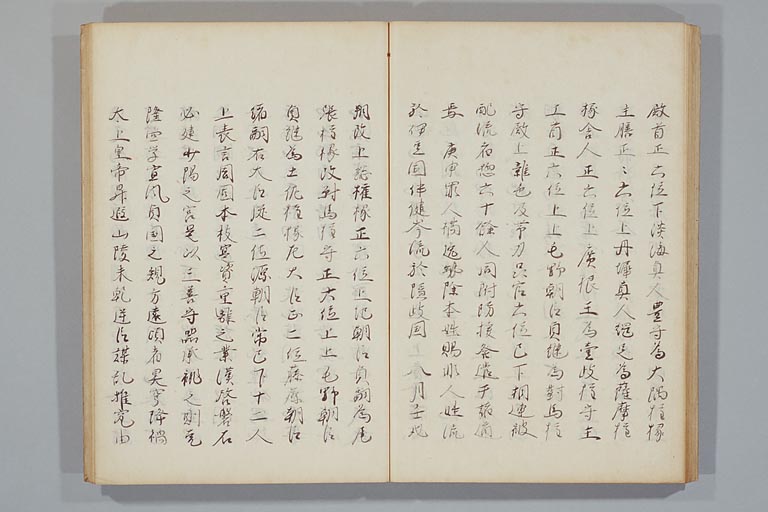 殿首正六位下淡海真人豊守為大隅権掾
主膳正々六位上丹墀真人縄足為薩摩権
掾舎人正六位上廣根王為壹岐権守主
工首正六位上上毛野朝臣貞継為對馬権
守殿上雜色及帯刀品官六位已下相連被
配流者惣六十餘人同附防援各遣于貶所
焉庚申罪人橘逸勢除本姓賜非人姓流
於伊豆国伴健岑流於隠岐国八月壬戌
朔改上総権掾正六位上紀朝臣貞嗣為尾
張権掾改對馬権守正六位上上毛野朝臣
貞継為土佐権掾左大臣正二位藤原朝臣
緒嗣右大臣従二位源朝臣常已下十二人
上表言周固本枝是資重離之業漢啓磐石
必建少陽之宮是以主善守器承祧之則克
隆崇学宣風貞国之規方遠頃者旻穹降禍
太上皇帝昇遐山陵未乾逆臣謀乱推究由